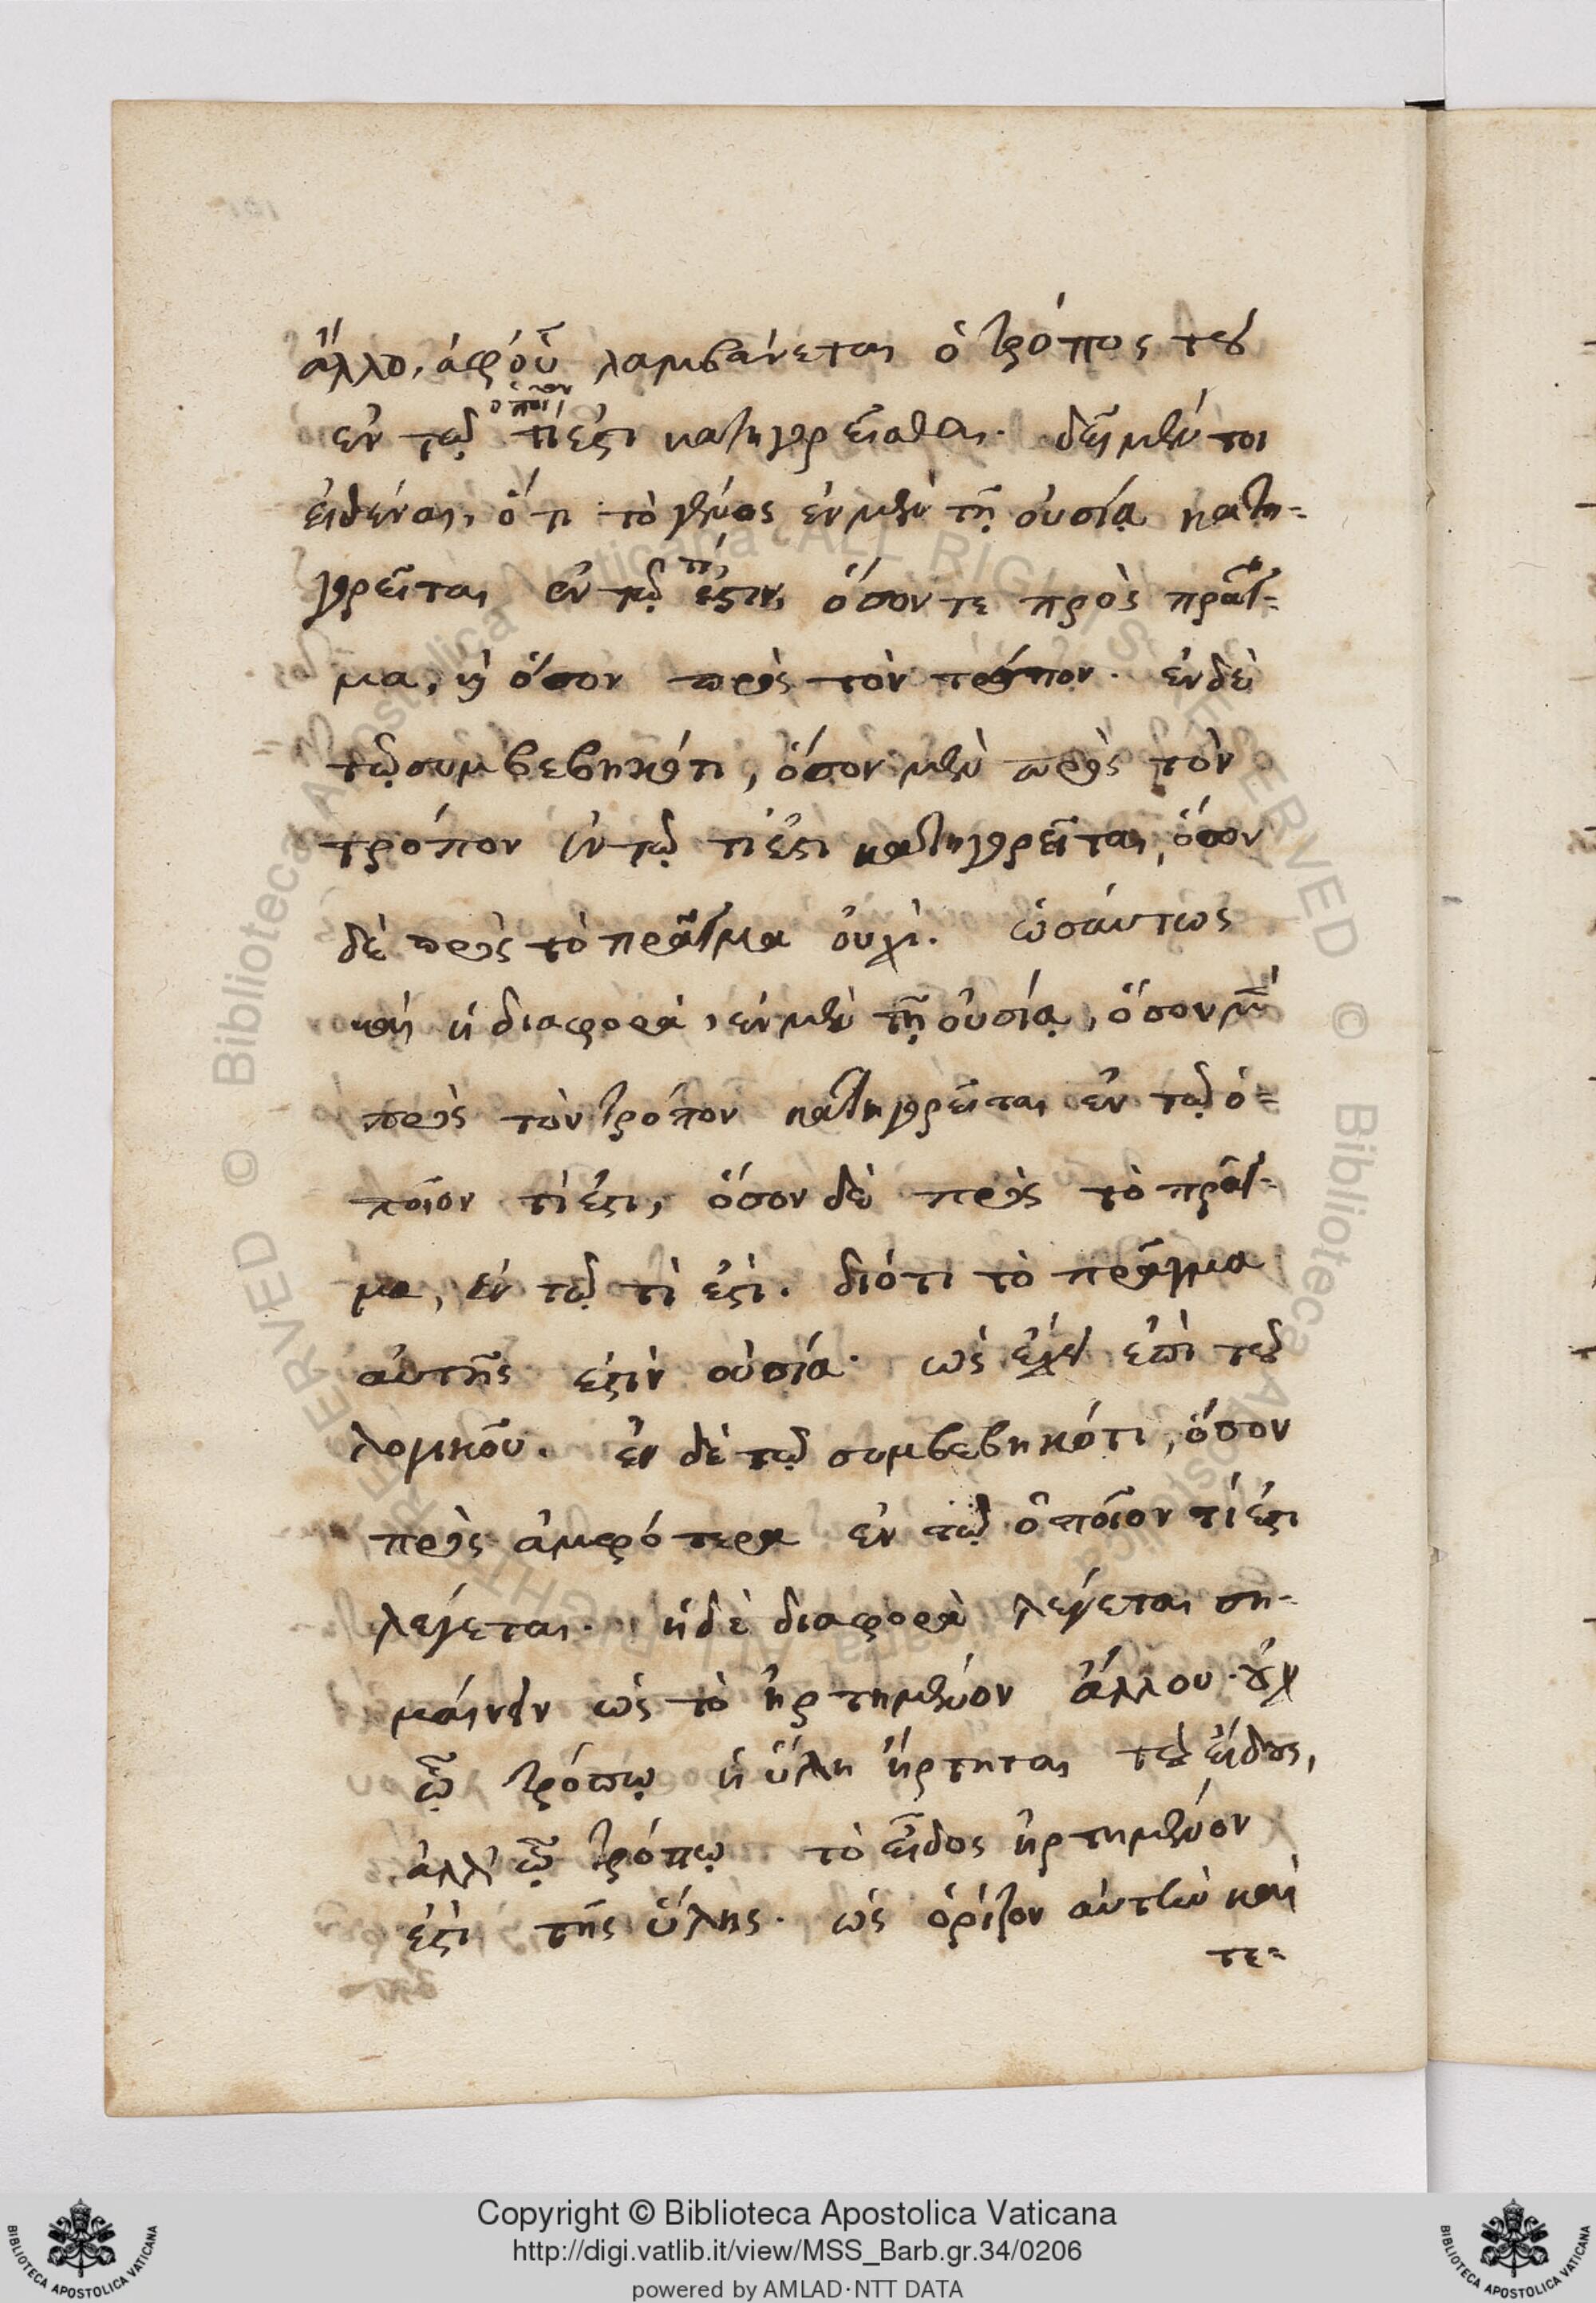 ἄλλο, ἀφ' οὗ λαμβάνεται ὁ τρόπος τοῦ
ἐν τῷ τί ἐστι κατηγορεῖσθαι. δεῖ μέντοι
εἰδέναι, ὅτι τὸ γένος ἐν μὲν τῇ οὐσίᾳ κατη-
γορεῖται ἐν τῷ τί ἐστιν, ὅσον τε πρὸς πρᾶγ-
μα, καὶ ὅσον πρὸς τὸν τρόπον. ἐν δὲ
τῷ συμβεβηκότι, ὅσον μὲν πρὸς τὸν
τρόπον ἐν τῷ τί ἐστι κατηγορεῖται, ὅσον
δὲ πρὸς τὸ πρᾶγμα οὐχί. ὡσαύτως
καὶ ἡ διαφορὰ, ἐν μὲν τῇ οὐσίᾳ, ὅσον μὲν
πρὸς τὸν τρόπον κατηγορεῖται ἐν τῷ ὁ-
ποῖον τί ἐστι, ὅσον δὲ πρὸς τὸ πρᾶγ-
μα, ἐν τῷ τὶ ἐστὶ. διότι τὸ πρᾶγμα
αὐτῆς ἐστὶν οὐσία. ὡς ἔχει ἐπὶ τοῦ
λογικοῦ. ἐν δὲ τῷ συμβεβηκότι, ὅσον
πρὸς ἀμφότερα ἐν τῷ ὁποῖον τί ἐστι
λέγεται. ἡ δὲ διαφορὰ λέγεται ση-
μαίνειν ὡς τὸ ἠρτημένον ἄλλου. οὐχ
ᾧ τρόπῳ ἡ ὕλη ἤρτηται τοῦ εἴδους,
ἀλλ' ᾧ τρόπῳ τὸ εἶδος ἠρτημένον
ἐστὶ τῆς ὕλης. ὡς ὁρίζον αὐτὴν καὶ
τε-
Copyright © Biblioteca Apostolica Vaticana
http://digi.vatlib.it/view/MSS_Barb.gr.34/0206
powered by AMLAD·NTT DATA